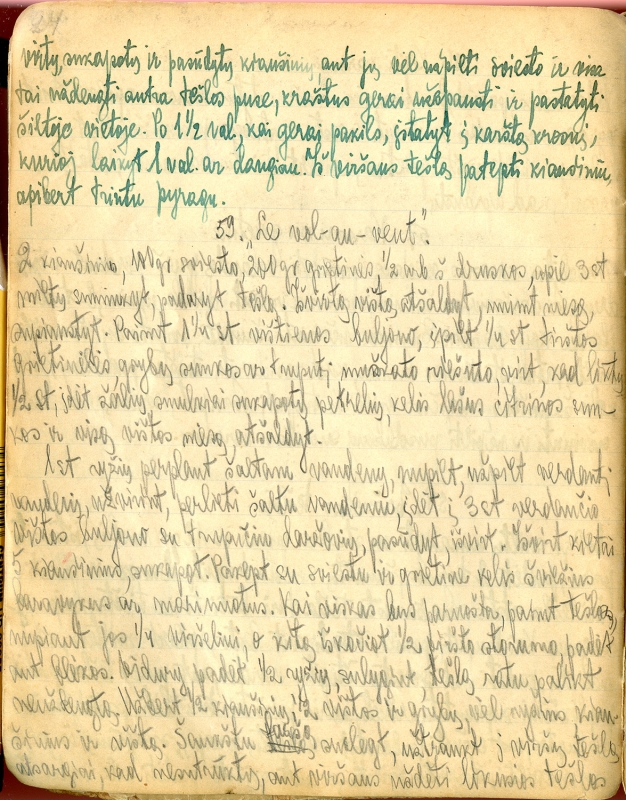 virtų, sukapotų ir pasūdytų kiaušinių, ant jų vėl užpilti sviesto ir visa
tai uždengti antra tešlos puse, kraštus gerai užspausti ir pastatyti
šiltoje vietoje. Po 1½ val., kai gerai pakils, įstatyt į karštą krosnį,
kurioj laikyt 1 val. ar daugiau. Iš viršaus tešlą patepti kiaušiniu,
apibert trintu pyragu.
59. "Le vol-au-vent".
2 kiaušinio, 100 gr sviesto, 200 gr grietinės, ½ arb š druskos, apie 3 st
miltų suminkyt, padaryt tešlą. Išvirtą vištą atšaldyt, nuimt mėsą,
supjaustyt. Paimt 1¼ st vištienos buljono, įpilt ¼ st tirštos
grietinėlės grybų sunkos ar truputį muškato riešuto, virt, kad liktų
½ st, įdėt žalių smulkiai sukapotų petrelių, kelis lašus citrinos sun-
kos ir visą vištos mėsą, atšaldyt.
1 st ryžių perplaut šaltam vandeny, nupilt, užpilt verdantį
vandenį, užvirint, perlieti šaltu vandeniu, įdėt į 3 st verdančio
vištos buljono su trupučiu daržovių, pasūdyt, išvirt. Išvirt kietai
5 kiaušinius, sukapot. Pakept su sviestu ir grietine kelis šviežius
baravykus ar marinuotus. Kai viskas bus paruošta, paimt tešlos,
nupjaut jos ¼ viršeliui, o kitą iškočiot ½ piršto storumo, padėt
ant blėkos. Vidury padėt ½ ryžių, sulygint, tešlą ratu palikt
neuždengtą. Užbert ½ kiaušinių, ½ vištos ir grybų, vėl ryžius, kiau-
šinius ir vištą. Šaukštu suslėgt, užtraukt į viršų tešlą
atsargiai, kad nesutrūktų, ant viršaus uždėti likusios tešlos